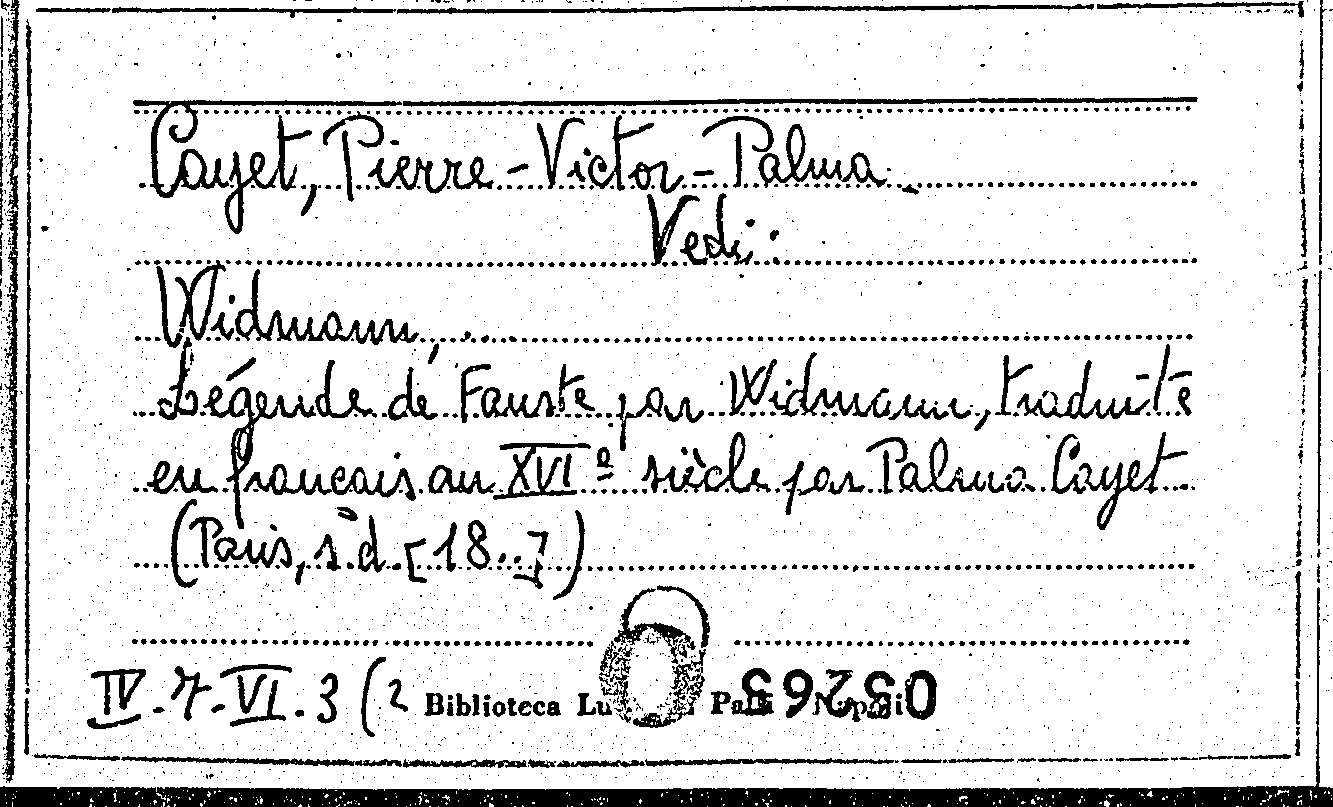 Cayet, Pierre-Victor-Palma.
Vedi:
Widmann, ...
Légende de Fauste par Widmann, traduite
en français au XVIº siècle par Palma Cayet.
(Paris, s.d. [18..])
IV.7-VI.3(2 Biblioteca